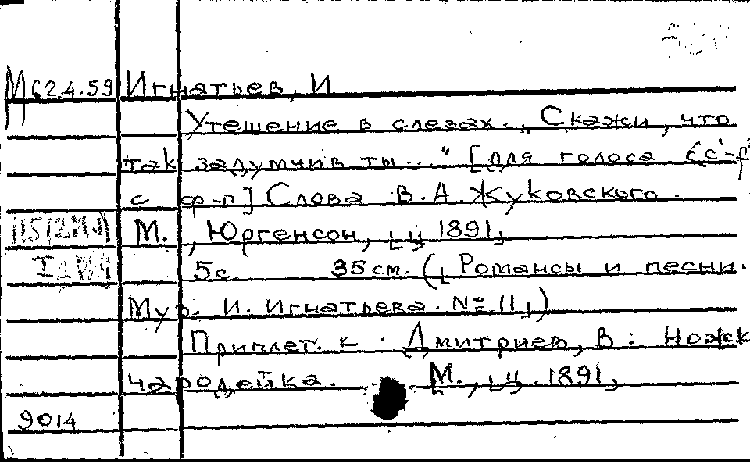 М 624.59 Игнатьев, И
Утешение в слезах. „Скажи, что
так задумчив ты..." [для голоса (c'-f
с ф-п] Слова В.А. Жуковского.
М., Юргенсон, ц. 1891,
5с. 35 см. (Романсы и песни.
Муз. И. Игнатьева. № 11)
Приплет. к: Дмитриев, В: Ножк
чародейка. М., ц. 1891,
9014